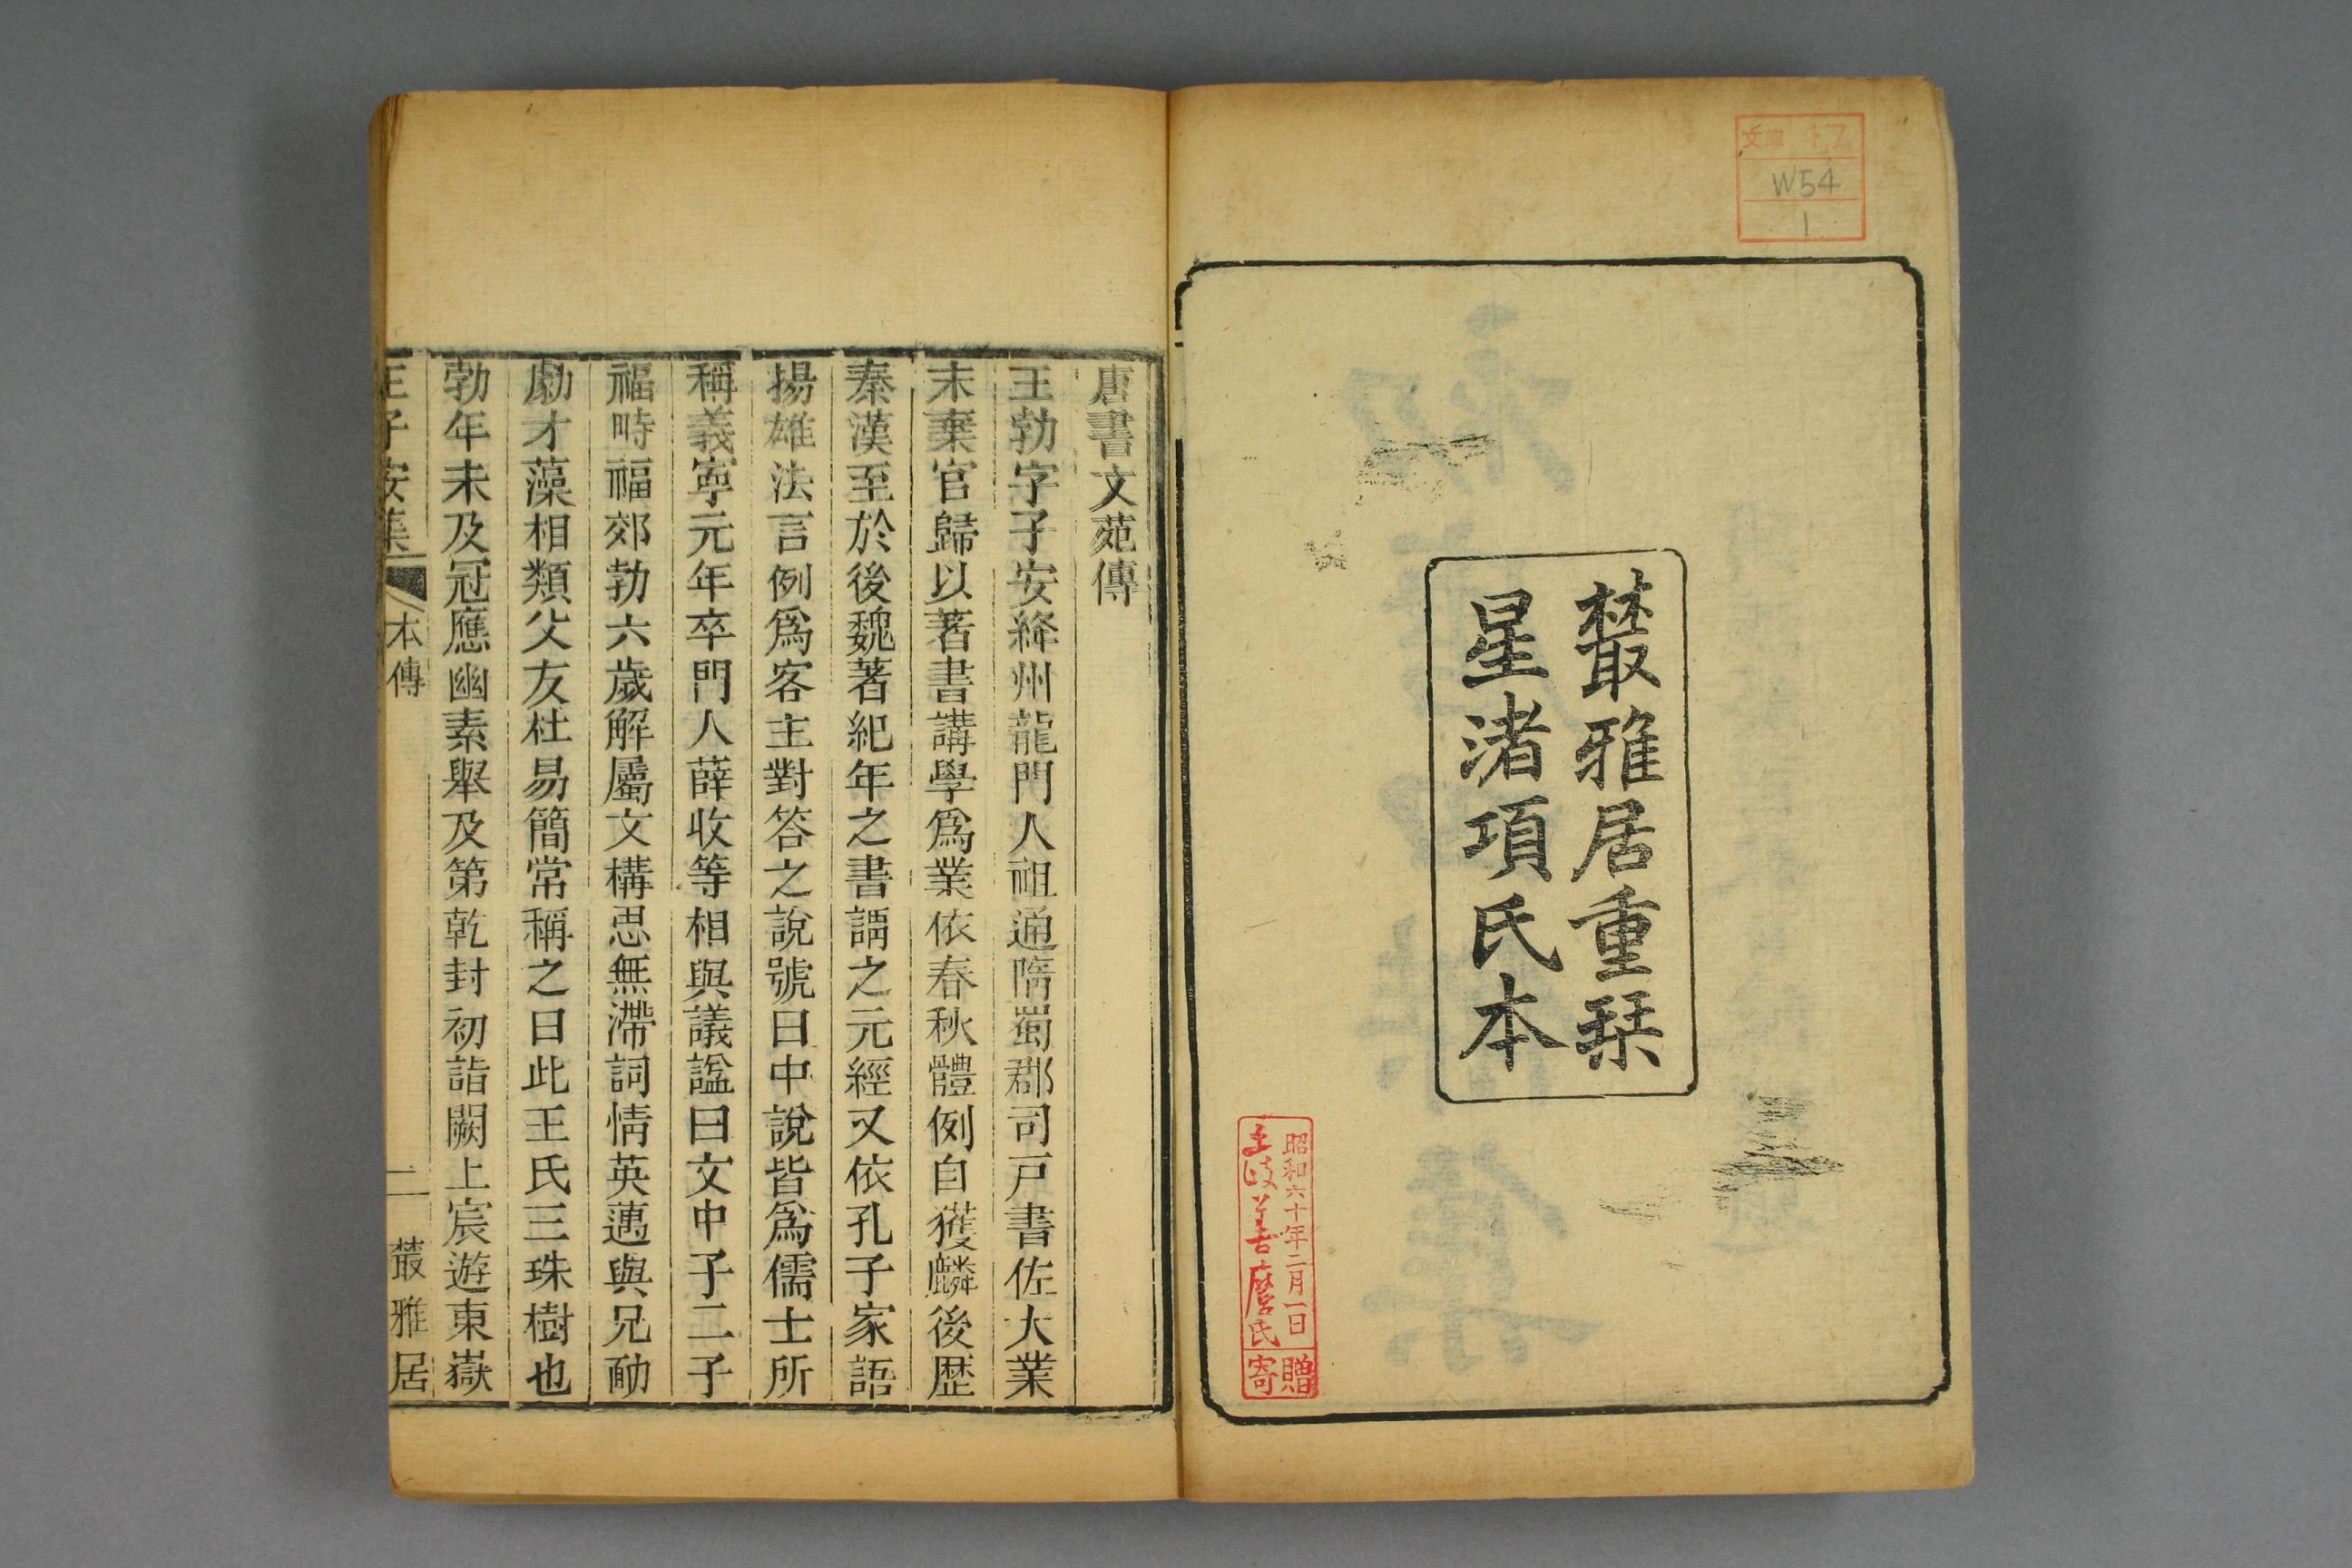 文庫 17
W54
1
藂雅居重琹
星渚項氏本
昭和六十年二月一日
土岐善麿氏
寄贈
唐書文苑傳
王勃字子安絳州龍門人祖通隋蜀郡司戸書佐大業
末棄官歸以著書講學爲業依春秋體例自獲麟後歴
秦漢至於後魏著紀年之書謂之元經又依孔子家語
揚雄法言例爲客主對答之說號曰中說皆爲儒士所
稱義寧元年卒門人薛收等相與議諡曰文中子二子
福畤福郊勃六歲解屬文構思無滯詞情英邁與兄勔
勮才藻相類父友杜易簡常稱之曰此王氏三珠樹也
勃年未及冠應幽素舉及第乾封初詣闕上宸遊東嶽
王子安集 本傳 二 藂雅居